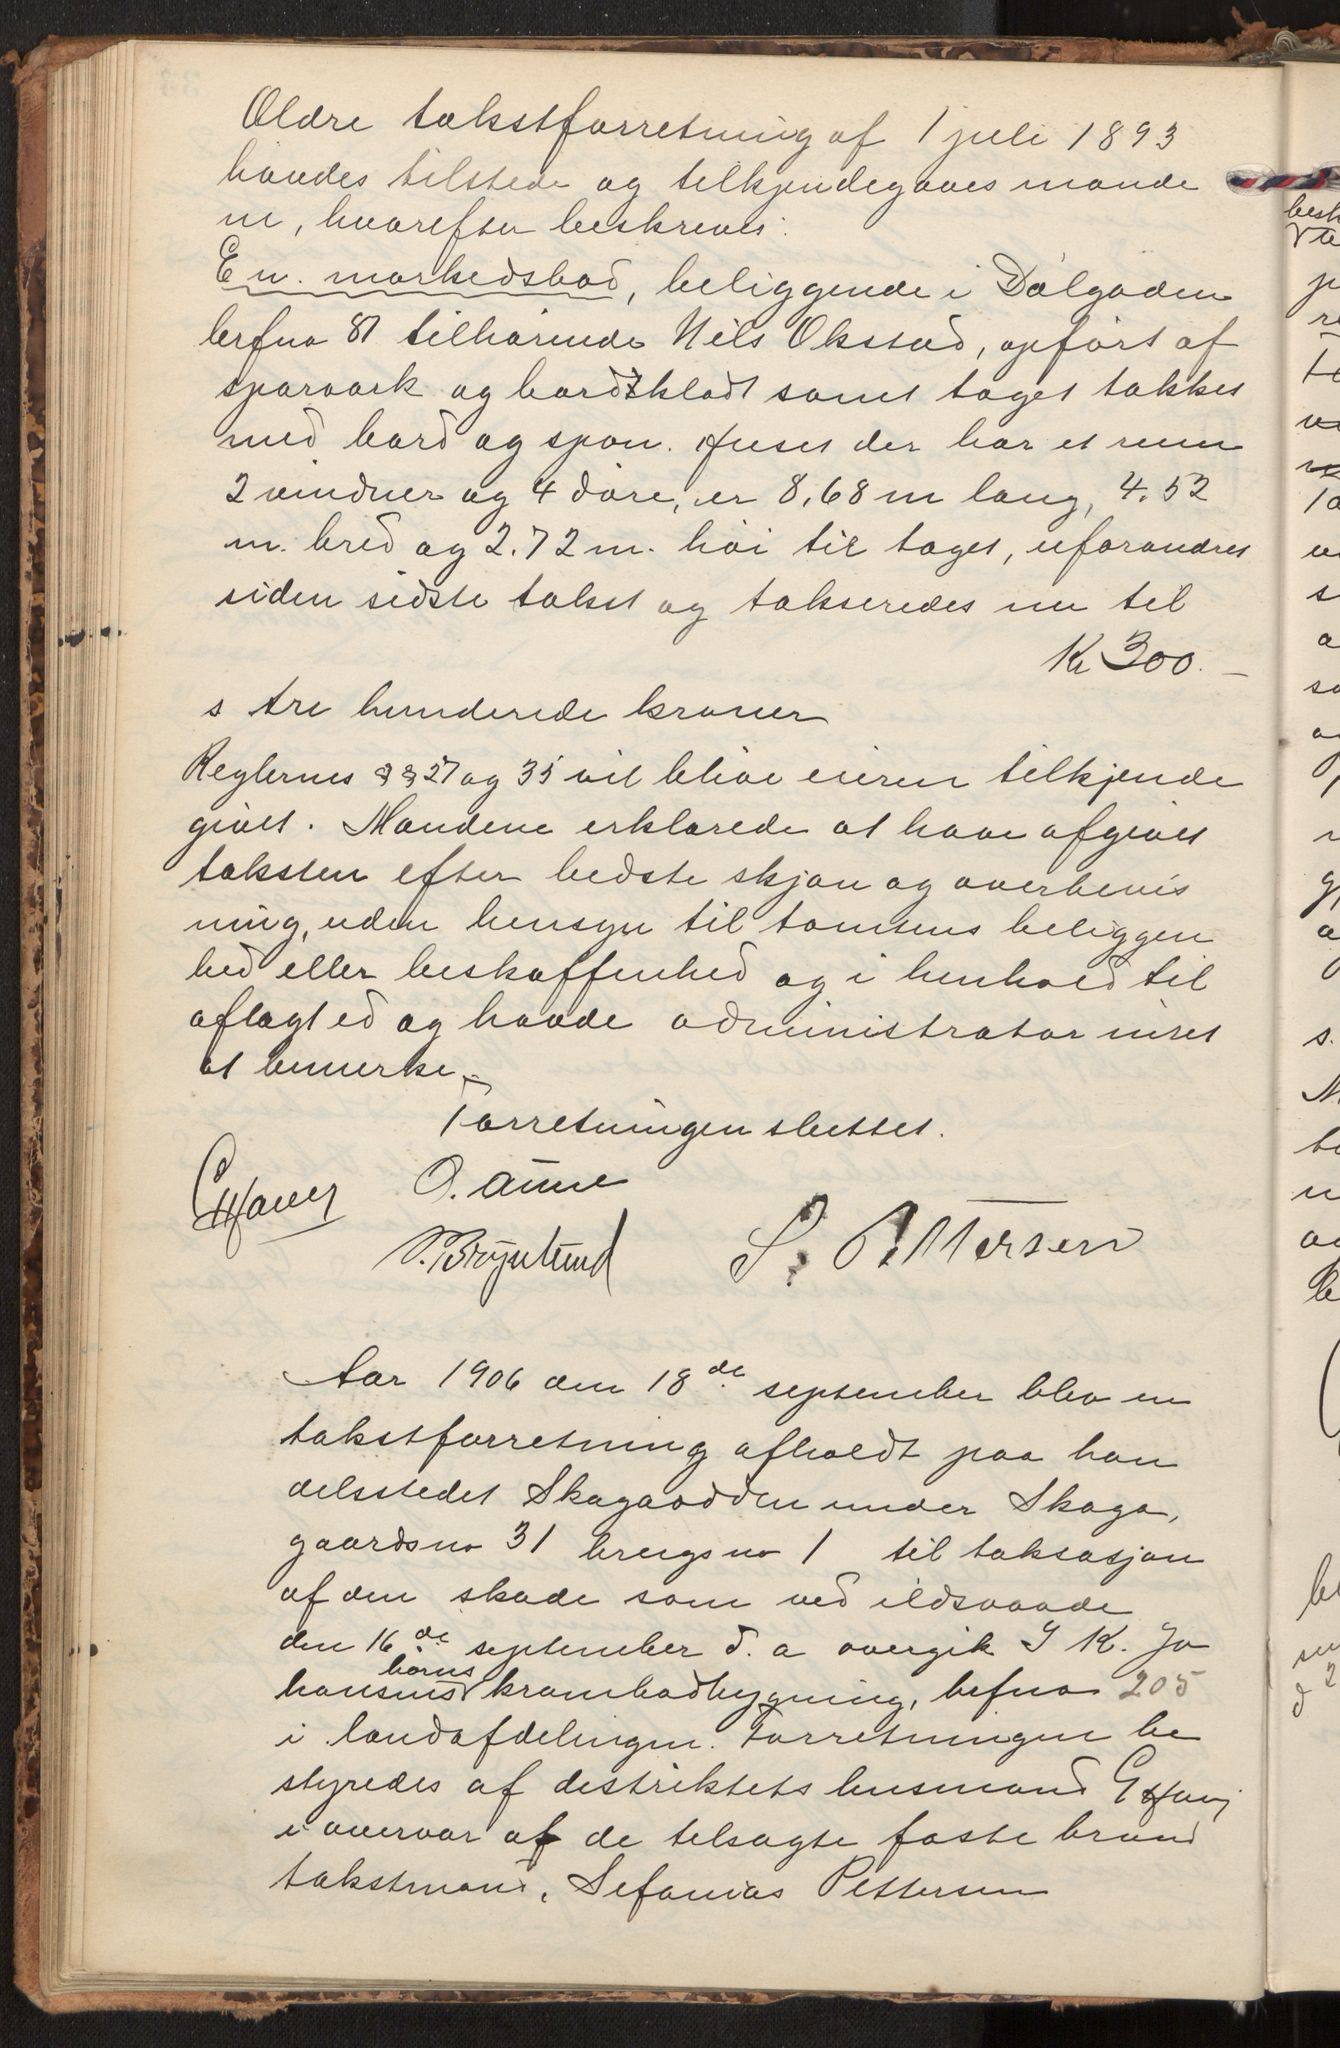 Ældre takstforretning af 1 juli 1893
havdes tilstede og tilkjendegaves mænde
ne, hvorefter beskreves:
En markedsbod, beliggende i Dalgaden
brfno 87 tilhørende Nils Okstad, opført af
sparværk og bordklædt samt taget tækket
med bord og spon. Huset der har et rum
2 vinduer og 4 døre, er 8,68 m lang, 4.52
m. bred og 2.72 m. høi til taget, uforandret
siden sidste takst og takseredes nu til
Kr 300.-
s tre hunderede kroner
Reglernes §§ 27 og 35 vil blive eieren tilkjende
givet. Mændene erklærede at have afgivet
taksten efter bedste skjøn og overbevis
ning, uden hensyn til tomtens beliggen
hed eller beskaffenhed og i henhold til
aflagt ed og havde administrator intet
at bemerke.
Forretningen sluttet.
O. Aune
S. Pettersen
Aar 1906 den 18de september blev en
takstforretning afholdt paa han
delsstedet Skagaodden under Skaga,
gaardsno 31 brugsno 1 til taksasjon
af den skade som ved ildsvaade
den 16de september d. a overgik J K. Jo
hansens børns krambodbygning, brfno 205
i landafdelingen. Forretningen be
styredes af distriktets lensmand
i overvær af de tilsagte faste brand
takstmænd, Sefanias Pettersen